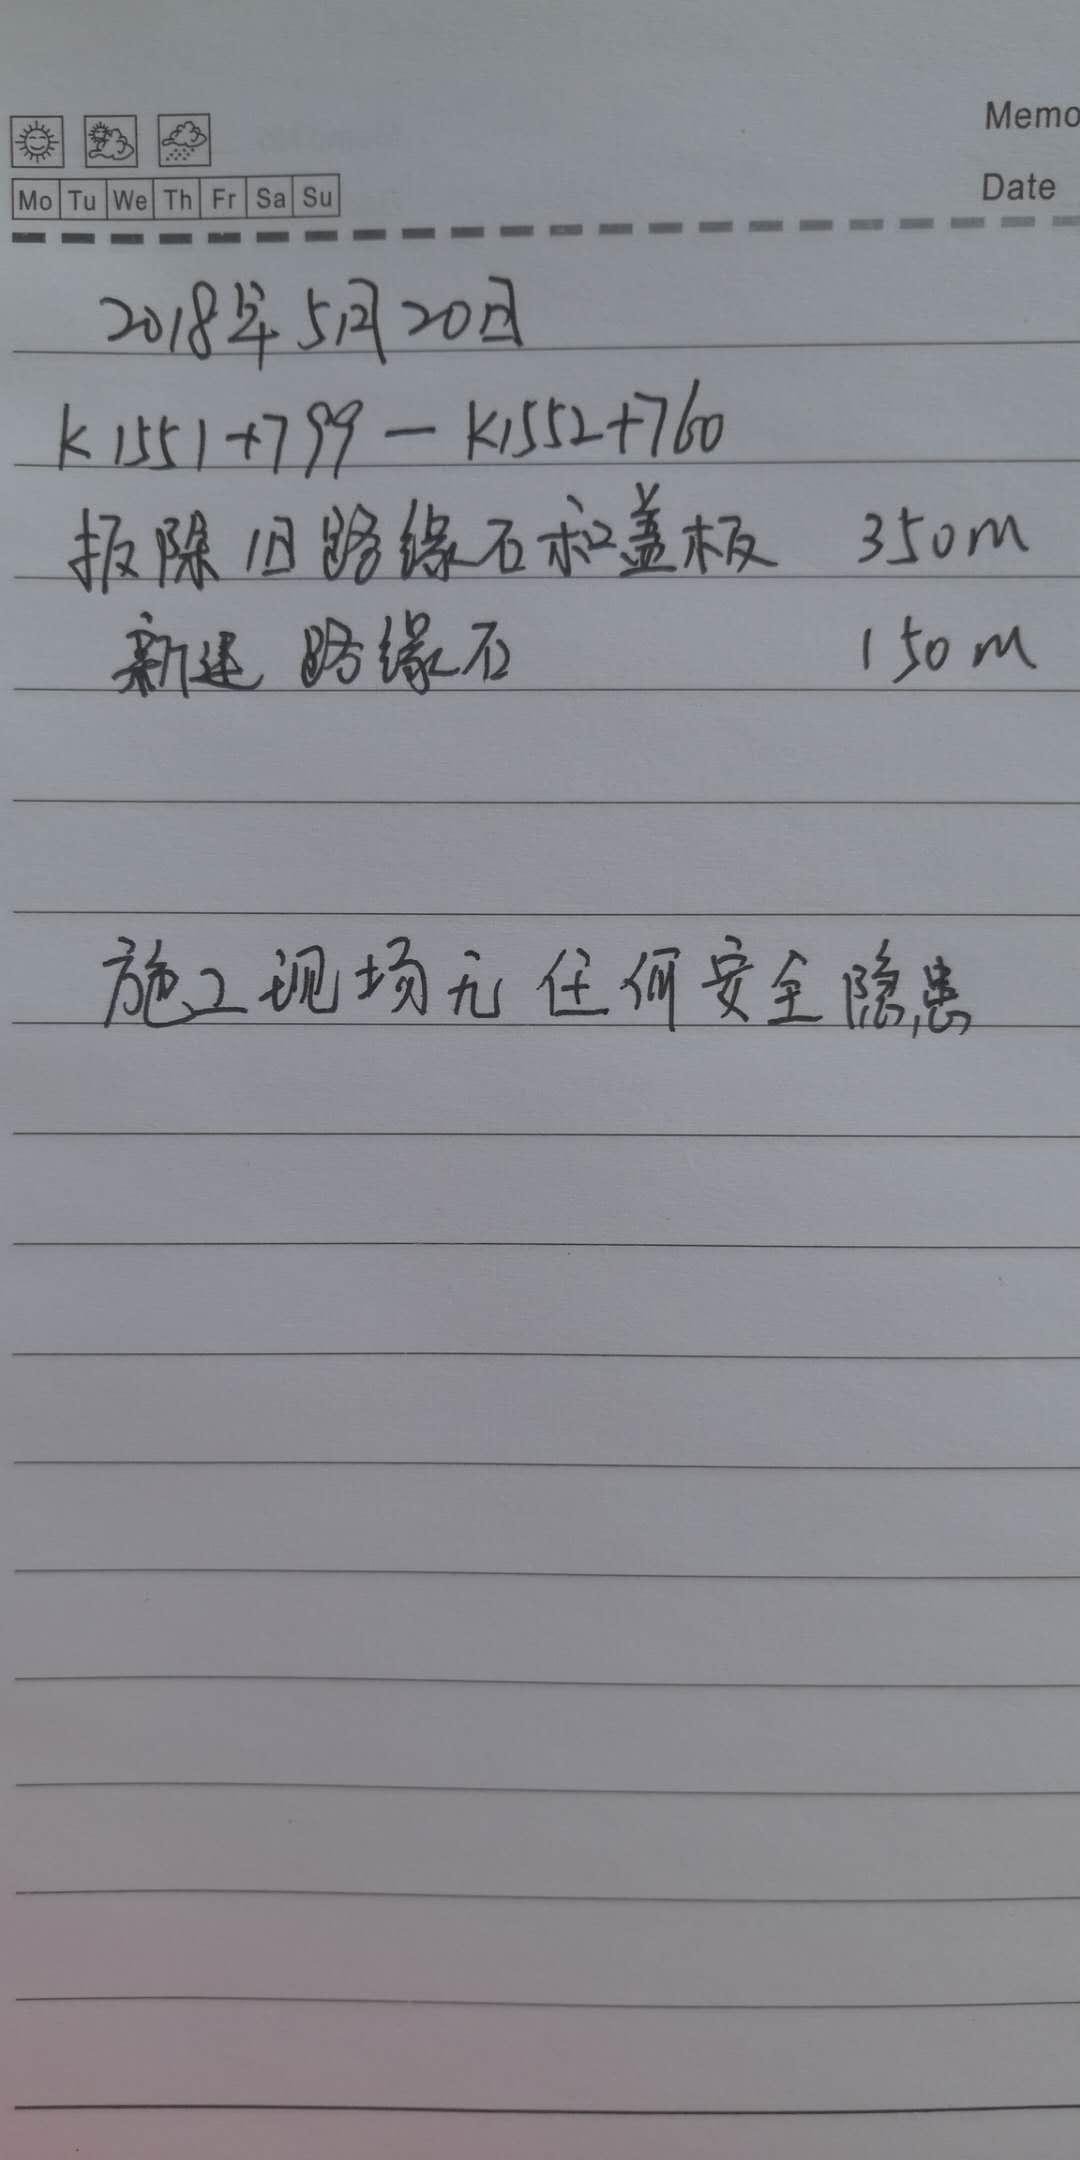 Memo
Mo Tu We Th Fr Sa Su
Date
2018年5月20日
K1551+799－K1552+760
扳除旧路缘石和盖板 350m
新建 路缘石 150m
施工现场无任何安全隐患